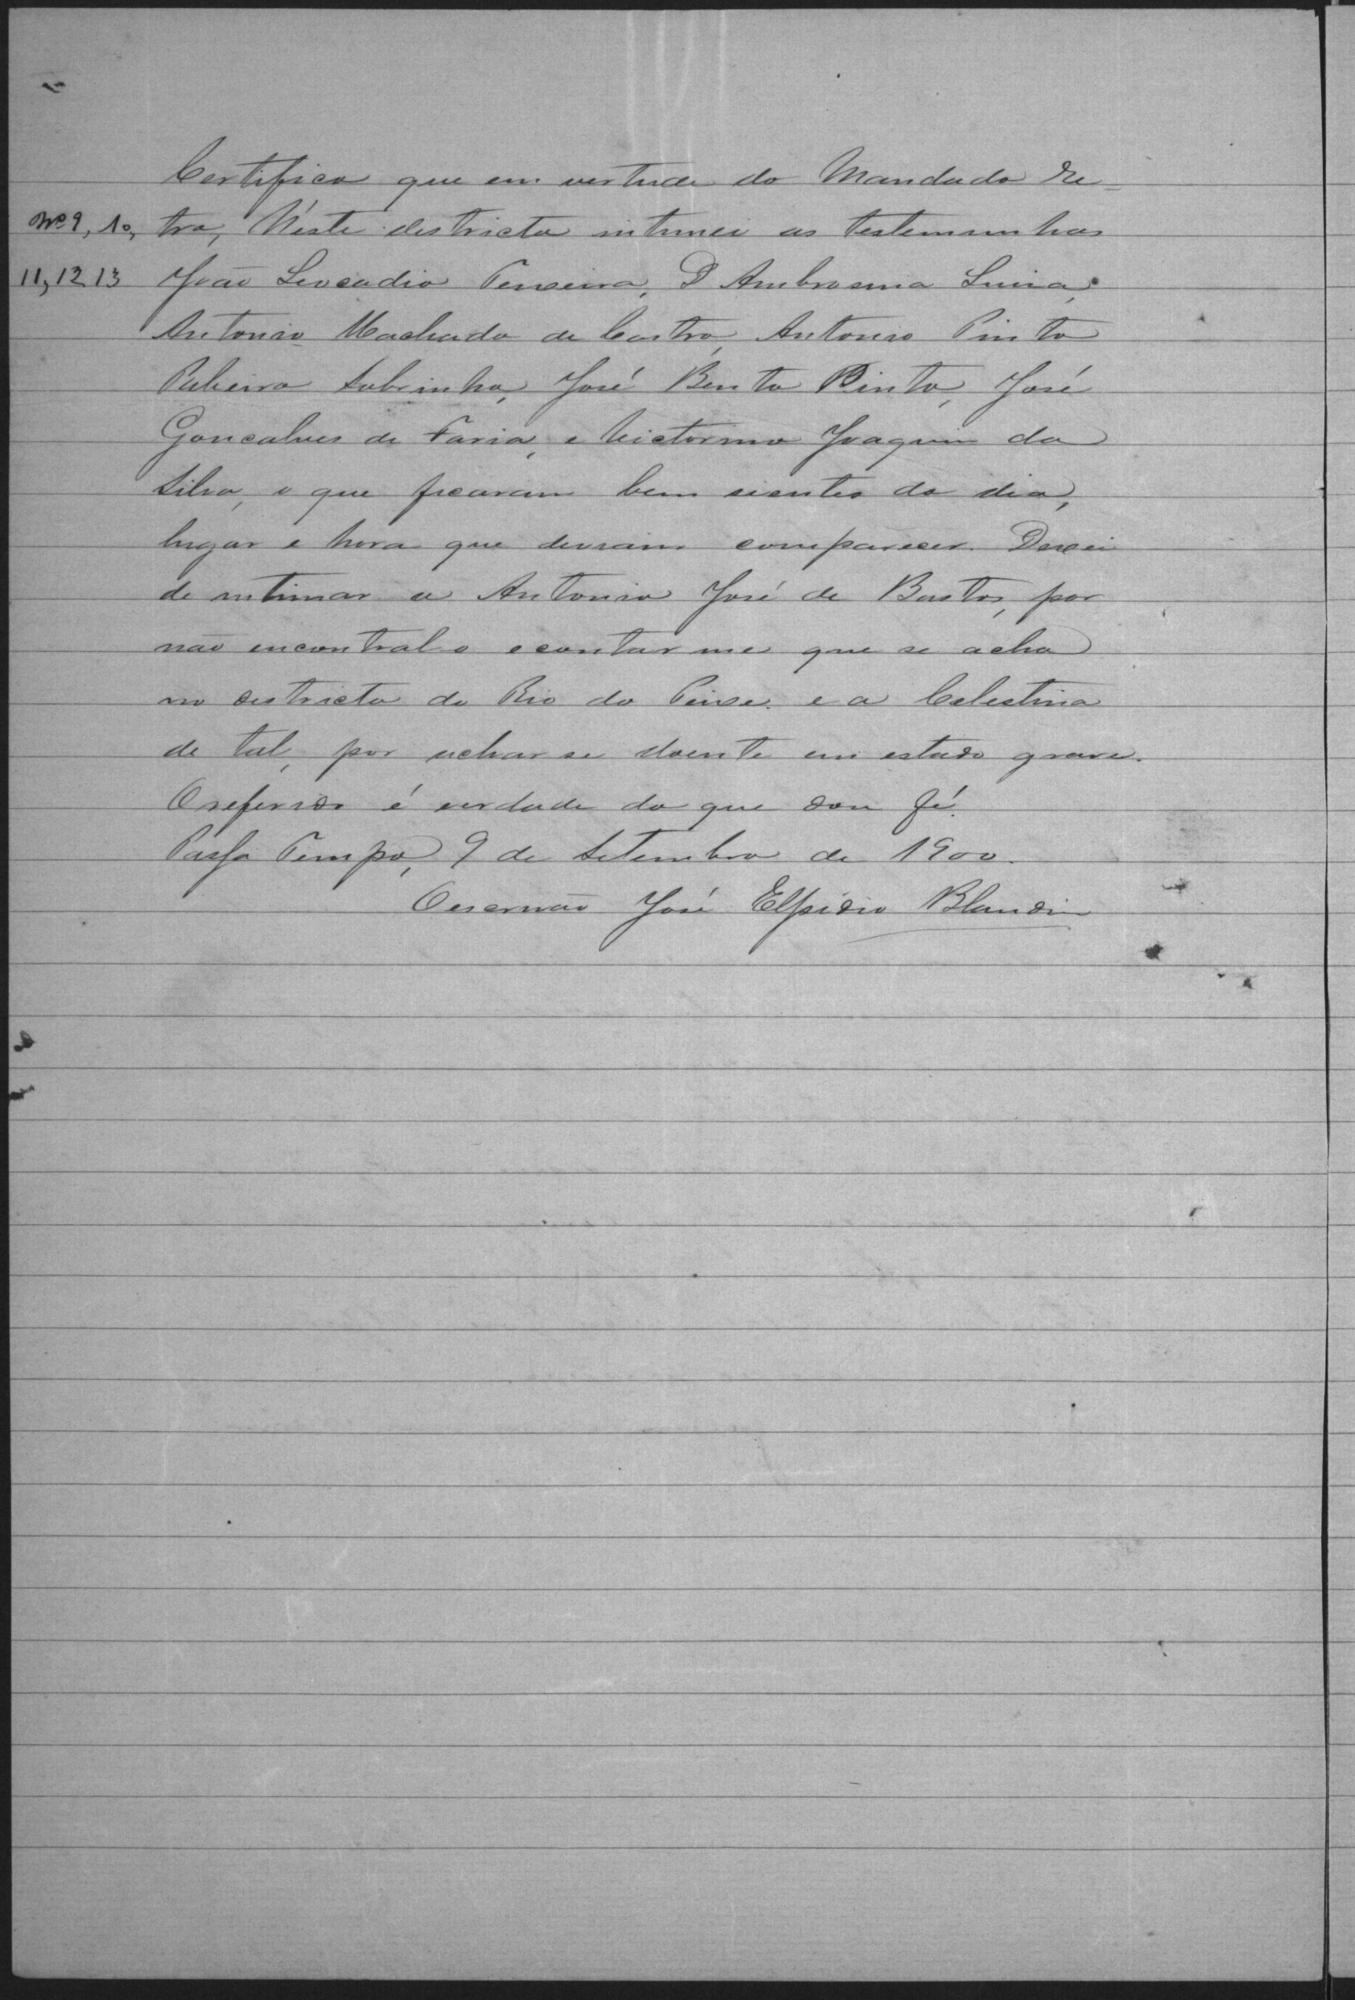 Certifico que em vertude do Mandado re-
Nº 9, 10, tro, Néste destricto intimei as testemunhas
11, 12 13 João Leocadio Teixeira, D Ambrosina Luiza,
Antonio Machado de Castro, Antonio Pinto
Ribeiro Sobrinho, José Bento Pinto, José
Goncalves de Faria, e Victorino Joaquim da
Silva, o que ficaram bem sientes do dia,
lugar e hora que deviam comparecer. Deixei
de intimar a Antonio José de Bastos, por
não encontral-o e contar me que se acha
no destricto do Rio do Peixe. e a Celestina
de tal, por achar se doente em estado grave.
O referido é verdade do que dou fé.
Passa Tempo, 9 de Setembro de 1900.
O escrivão José Elpidio Blandin